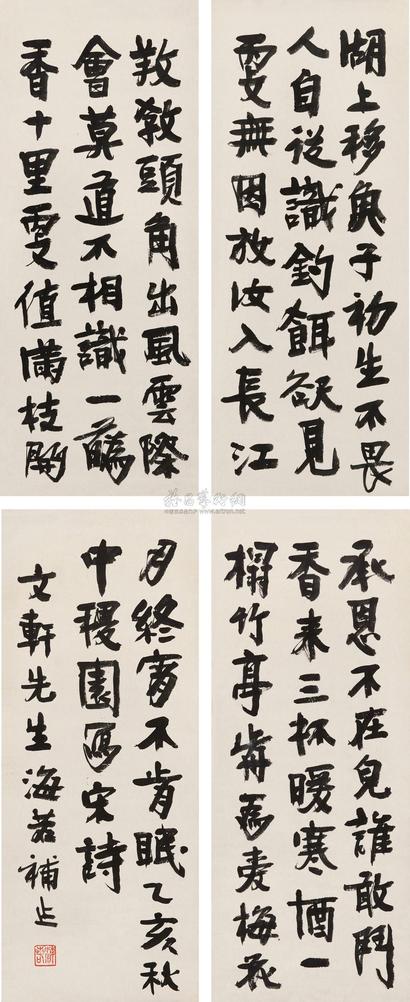 湖上移魚子初生不畏
人自從識釣餌欲見
更無因放汝入長江
教頭角出風雲際
會莫道不相識一蘤
香十里更值滿枝開
承恩不在皃誰敢鬥
香來三杯暖寒酒一
榻竹亭歬為愛梅花
月終宵不肯眠乙亥秋
中稷園寫宋詩
文軒先生海若補